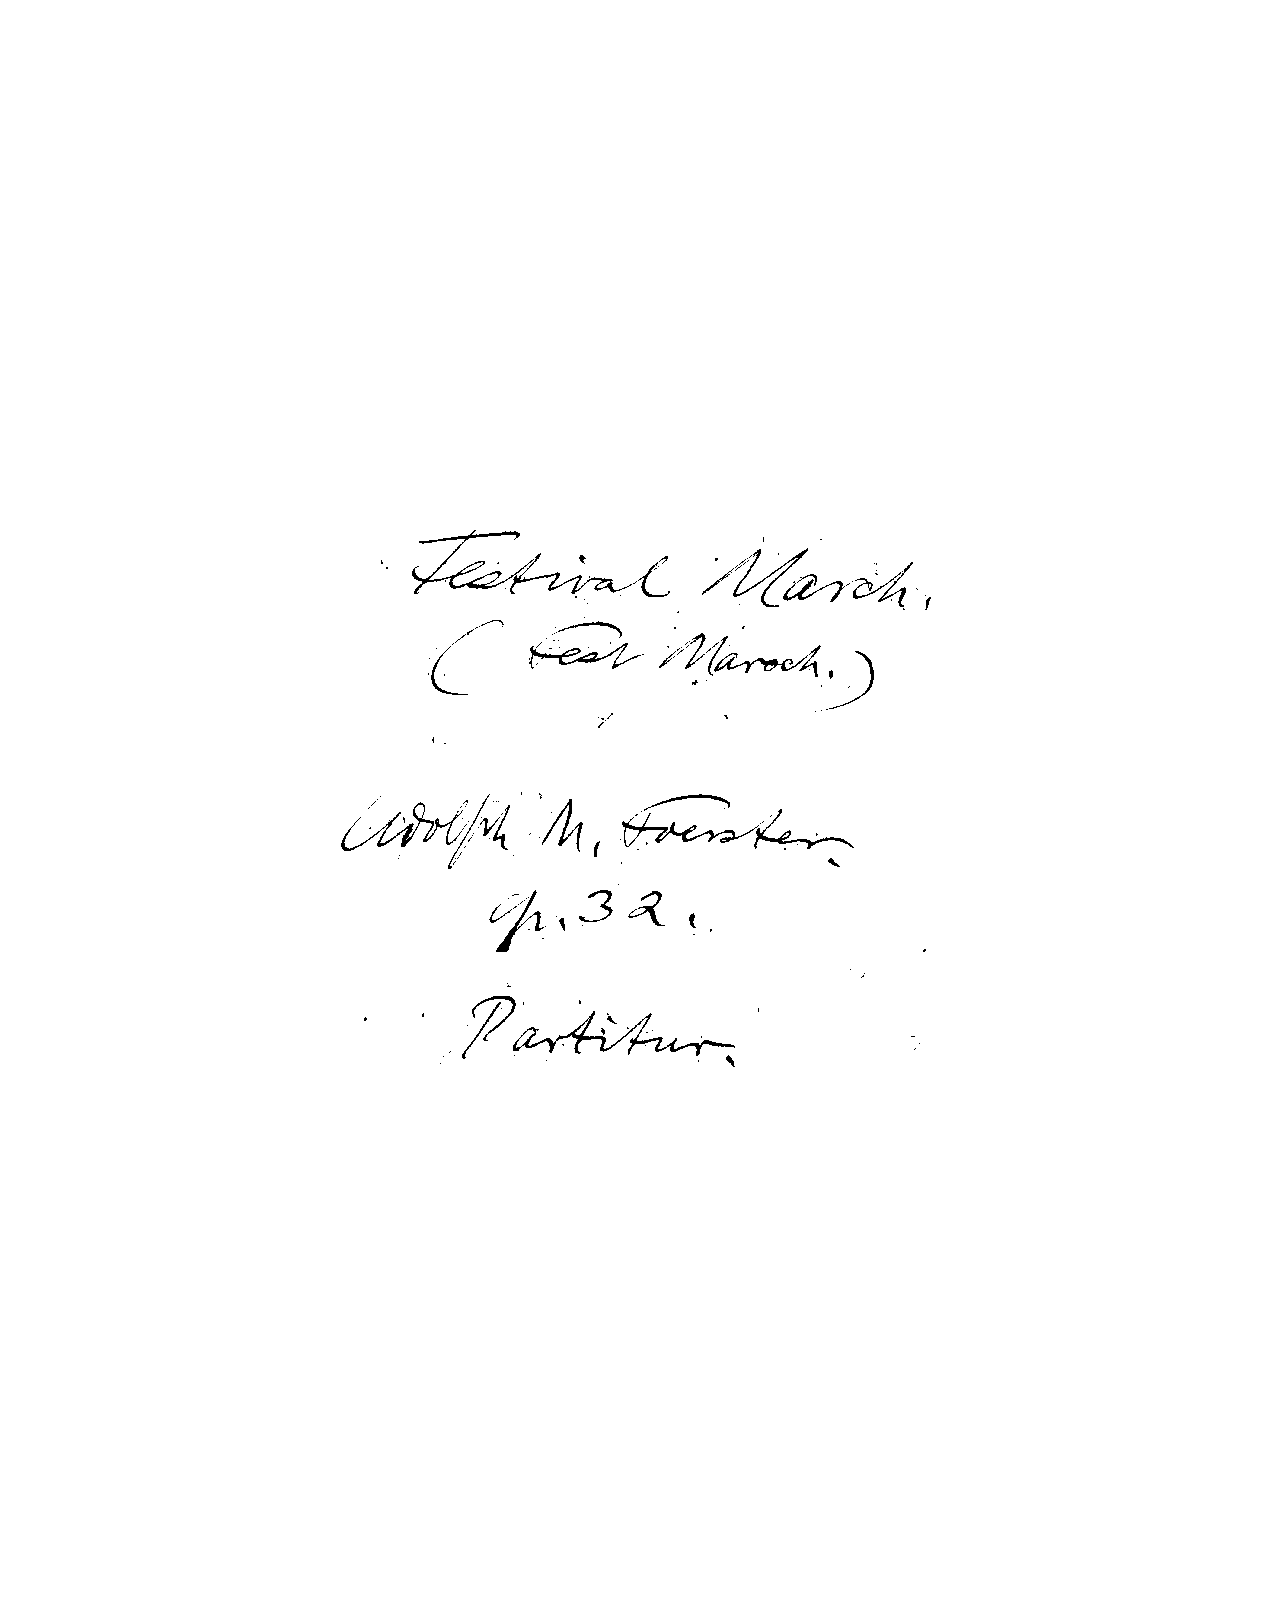 Festival March.
(Fest Marsch.)
Adolph M. Foerster.
op. 32.
Partitur.